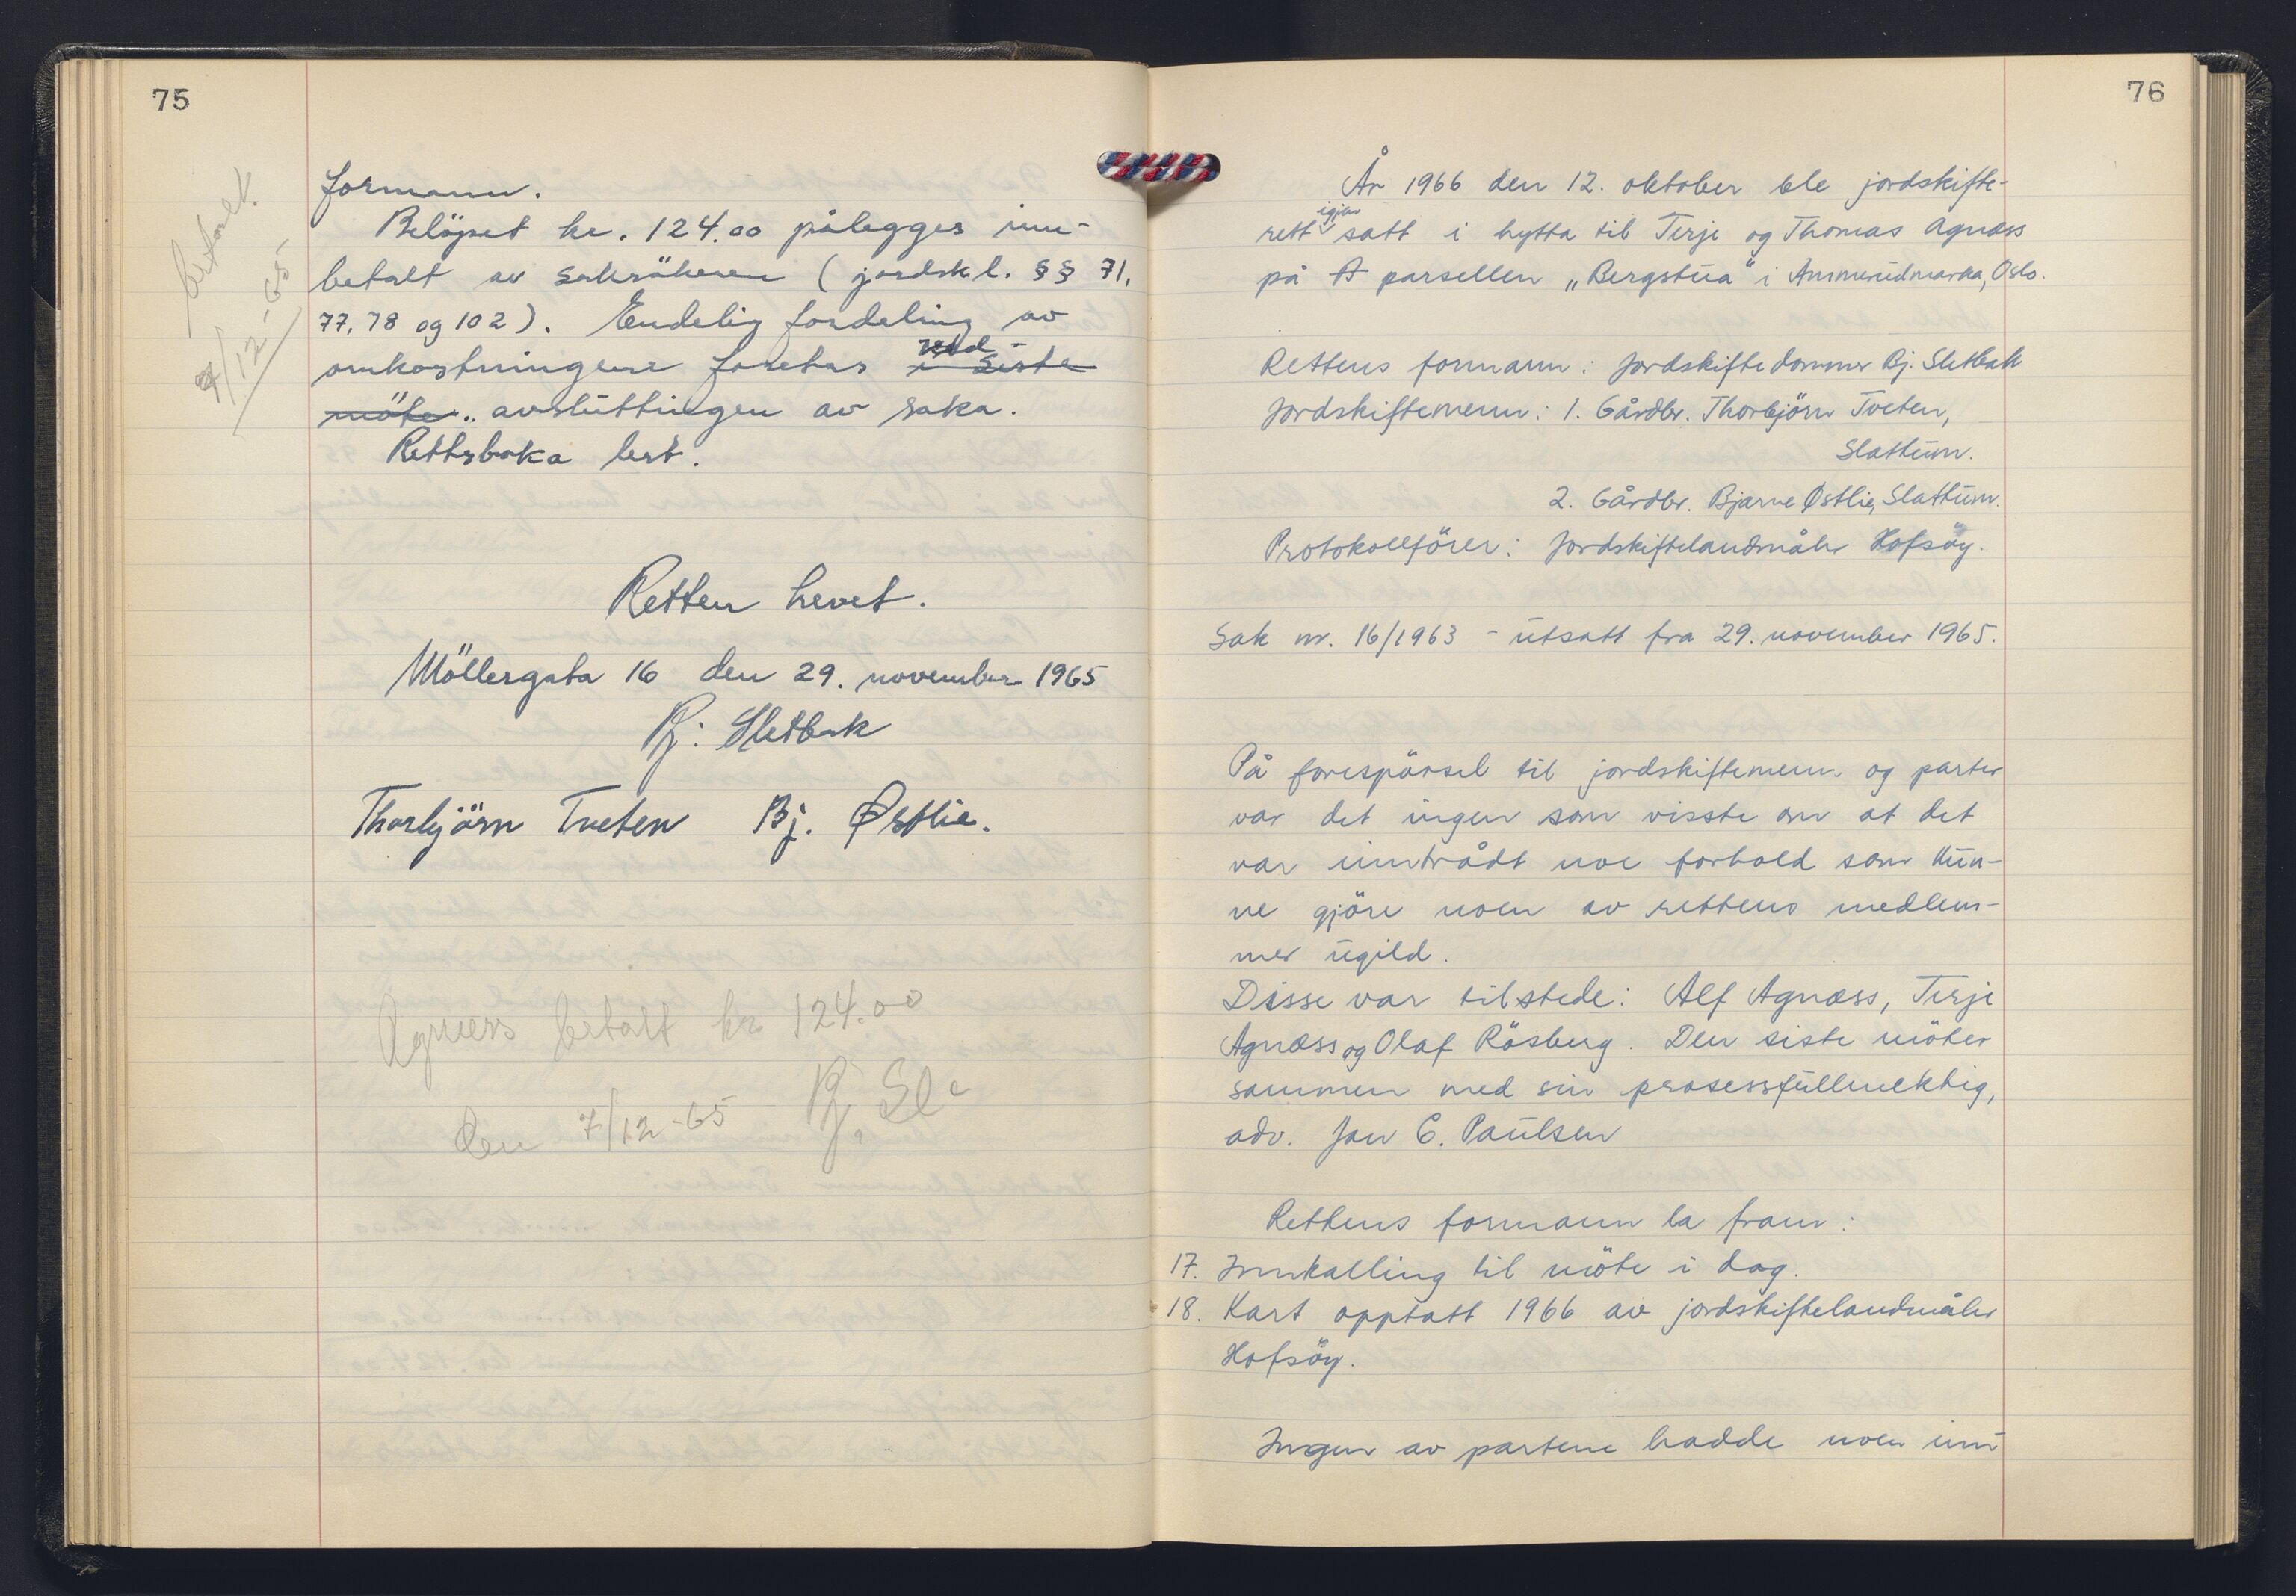 75
betalt
7/12-65
formann.
Beløpet kr. 124.00 pålegges inn-
betalt av saksökeren (jordsk l. §§ 71,
77, 78 og 102). Endelig fordeling av
omkostningene foretas i siste ved
möte.. avslüttningen av saka.
Rettsboka lest.
Retten hevet.
Möllergata 16 den 29. november 1965
Bj. Sletbak
Thorbjörn Tveten Bj. Østlie.
Agnæss betalt kr 124.00
den 7/12-65 Bj. Sl
76
År 1966 den 12. oktober ble jordskifte-
rett igjen satt i hytta til Terje og Thomas Agnæss
på A parsellen „Bergstüa" i Ammerüdmarka, Oslo.
Rettens formann: Jordskiftedommer Bj. Sletbak
Jordskiftemenn: 1. Gårdbr. Thorbjörn Tveten,
Slattüm.
2. Gårdbr. Bjarne Østlie, Slattüm.
Protokollförer: Jordskiftelandmåler Hofsöy.
Sak nr. 16/1963 - ütsatt fra 29. november 1965.
På forespörsel til jordskiftemenn og parter
var det ingen som visste om at det
var inntrådt noe forhold som kün-
ne gjöre noen av rettens medlem-
mer ügild.
Disse var tilstede: Alf Agnæss, Terje
Agnæss og Olaf Råsberg. Den siste möter
sammen med sin prosessfüllmektig,
adv. Jan E. Paülsen
Rettens formann la fram:
17. Innkalling til möte i dag.
18. Kart opptatt 1966 av jordskiftelandmåler
Hofsöy.
Ingen av partene hadde noen inn-